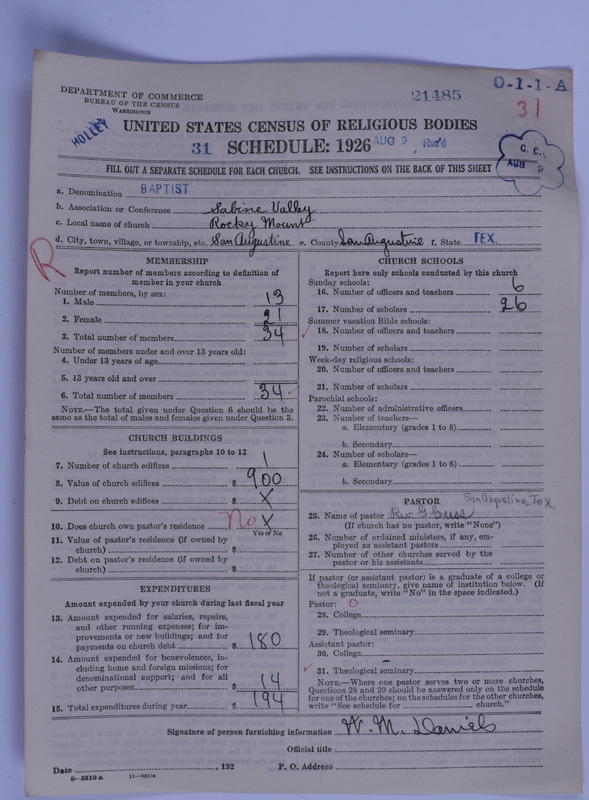 DEPARTMENT OF COMMERCE
BUREAU OF THE CENSUS
WASHINGTON
21485
O-1-1-A
31
HOLLEY
UNITED STATES CENSUS OF RELIGIOUS BODIES
31 SCHEDULE: 1926 AUG 9 Rec'd
C. C.
AUG 9
FILL OUT A SEPARATE SCHEDULE FOR EACH CHURCH. SEE INSTRUCTIONS ON THE BACK OF THIS SHEET
a. Denomination BAPTIST
b. Association or Conference Sabine Valley
c. Local name of church Rocky Mount
d. City, town, village, or township, etc. San Augustine e. County San Augustine f. State TEX.
R
MEMBERSHIP
Report number of members according to definition of
member in your church
Number of members, by sex:
1. Male 13
2. Female 21
3. Total number of members 34
Number of members under and over 13 years old:
4. Under 13 years of age
5. 13 years old and over
6. Total number of members 34
NOTE.—The total given under Question 6 should be the
same as the total of males and females given under Question 3.
CHURCH BUILDINGS
See instructions, paragraphs 10 to 12
7. Number of church edifices 1
8. Value of church edifices $ 900
9. Debt on church edifices $ X
10. Does church own pastor's residence No X
Yes or No
11. Value of pastor's residence (if owned by
church) $
12. Debt on pastor's residence (if owned by
church) $
EXPENDITURES
Amount expended by your church during last fiscal year
13. Amount expended for salaries, repairs,
and other running expenses; for im-
provements or new buildings; and for
payments on church debt $ 180
14. Amount expended for benevolences, in-
cluding home and foreign missions; for
denominational support; and for all
other purposes $ 14
15. Total expenditures during year $ 194
CHURCH SCHOOLS
Report here only schools conducted by this church
Sunday schools:
16. Number of officers and teachers 6
17. Number of scholars 26
Summer vacation Bible schools:
18. Number of officers and teachers
19. Number of scholars
Week-day religious schools:
20. Number of officers and teachers
21. Number of scholars
Parochial schools:
22. Number of administrative officers
23. Number of teachers—
a. Elementary (grades 1 to 8)
b. Secondary
24. Number of scholars—
a. Elementary (grades 1 to 8)
b. Secondary
PASTOR San Augustine, Tex.
25. Name of pastor Rev. G.
(If church has no pastor, write "None")
26. Number of ordained ministers, if any, em-
ployed as assistant pastors
27. Number of other churches served by the
pastor or his assistants
If pastor (or assistant pastor) is a graduate of a college or
theological seminary, give name of institution below. (If
not a graduate, write "No" in the space indicated.)
Pastor: 0
28. College
29. Theological seminary
Assistant pastor:
30. College
31. Theological seminary
NOTE.—Where one pastor serves two or more churches,
Questions 28 and 29 should be answered only on the schedule
for one of the churches; on the schedules for the other churches,
write "See schedule for church."
Signature of person furnishing information W. M. Daniels
Official title
Date , 192 P. O. Address
8-5518 a 11-9051a